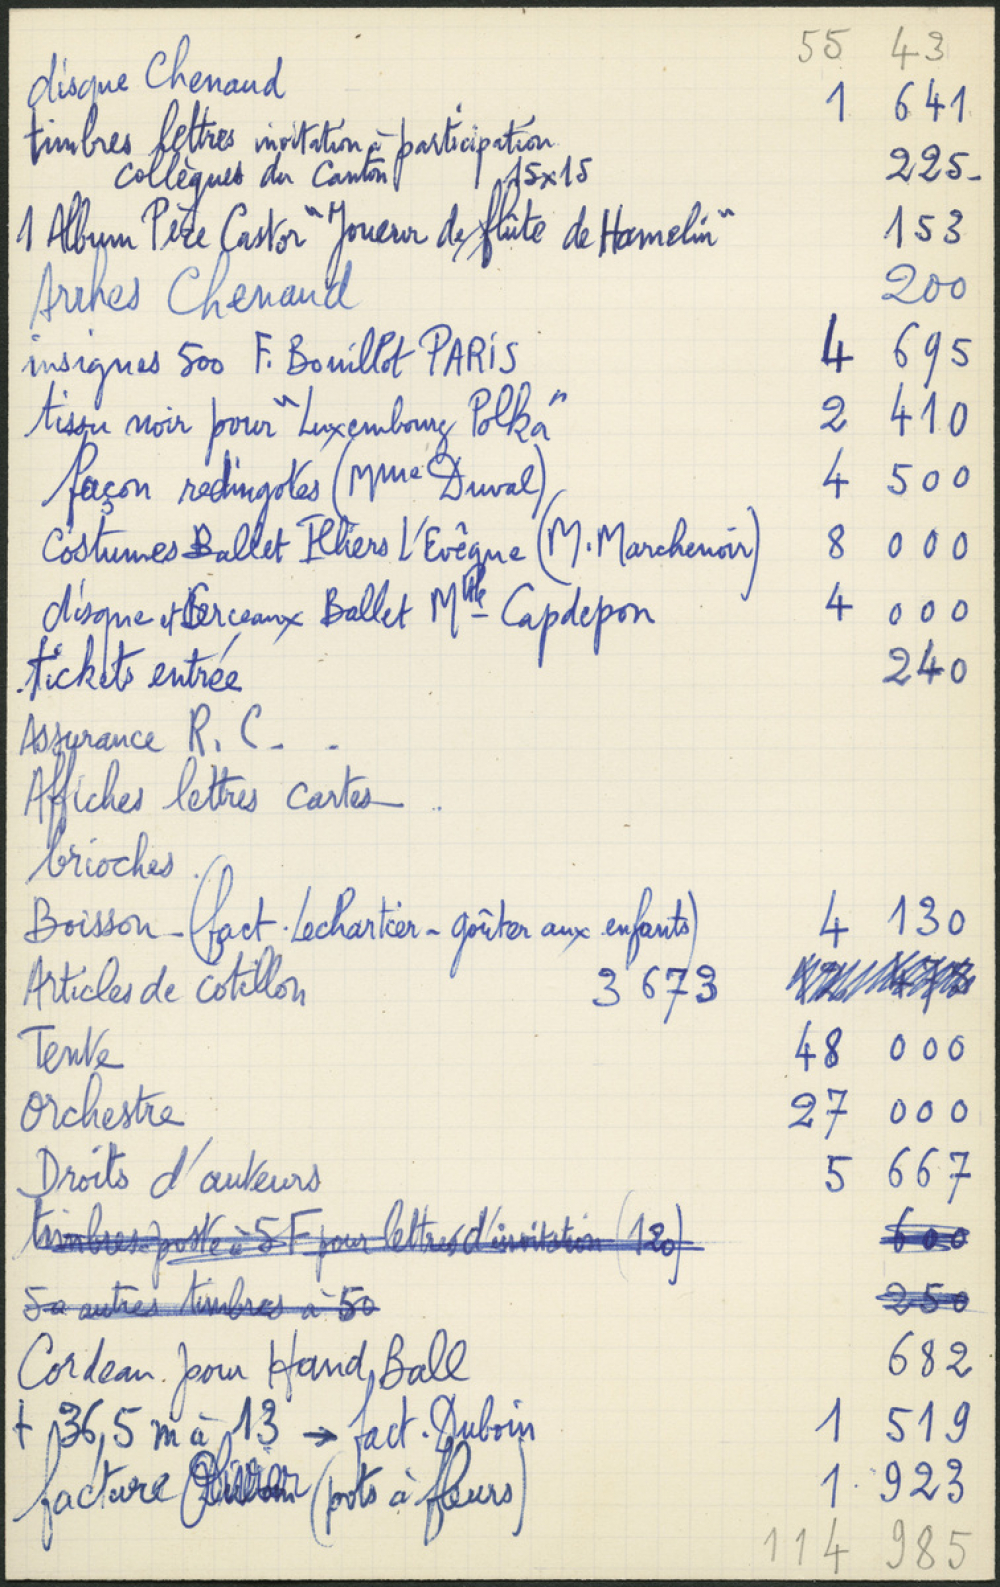 55 43
disque Chenaud 1 641
timbres lettres invitation à participation
collègues du Canton 15x15 225-
1 Album Père Castor "Joueur de flûte de Hamelin" 153
Arrhes Chenaud 200
insignes 500 F. Bouillot PARIS 4 695
tissu noir pour "Luxembourg Polka" 2 410
façon redingotes (Mme Duval) 4 500
costumes Ballet Illiers L'Evêque (M. Marchenoir) 8 000
disque et Cerceaux Ballet Mlle Capdepon 4 000
tickets entrée 240
Assurance R. C.
Affiches lettres cartes
brioches
Boisson - (fact. Lechartier - goûter aux enfants) 4 130
Articles de cotillon 3 673
Tente 48 000
Orchestre 27 000
Droits d'auteurs 5 667
timbres-poste à 5 F pour lettres d'invitation (120) 600
50 autres timbres à 50 250
Cordeau pour Hand Ball 682
+ 36,5 m à 13 → fact. Duboin 1 519
facture (pots à fleurs) 1 923
114 985